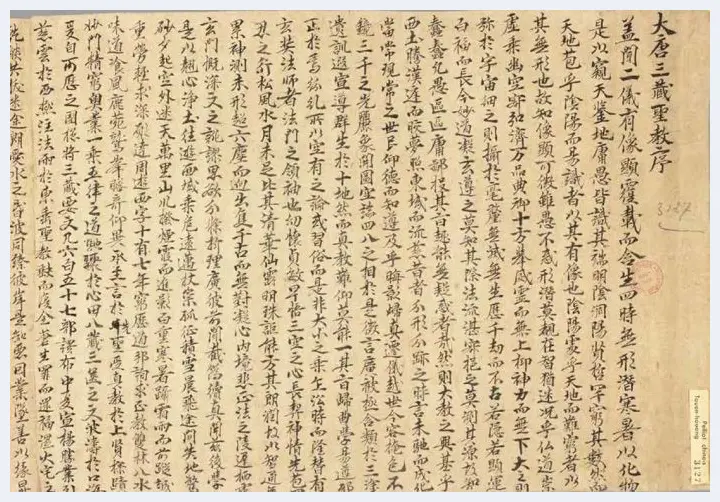 大唐三藏聖教序
蓋聞二儀有像顯覆載而含生四時無形潛寒暑以化物
是以窺天鑒地庸愚皆識其端明陰洞陽賢哲罕窮其數然而
天地苞乎陰陽而易識者以其有像也陰陽處乎天地而難窮者以
其無形也故知像顯可徵雖愚不惑形潛莫覩在智猶迷況乎佛道崇
虛乘幽控寂弘濟万品典御十方舉威靈而無上抑神力而無下大之則
弥於宇宙細之則攝於毫釐無滅無生歷千劫而不古若隱若顯運
百福而長今妙道凝玄遵之莫知其際法流湛寂挹之莫測其源故知
蠢蠢凡愚區區庸鄙投其旨趣能無疑惑者哉然則大教之興基乎
西土騰漢廷而皎夢照東域而流慈昔者分形分跡之時言未馳而成化
當常現常之世民仰德而知遵及乎晦影歸真遷儀越世金容掩色不
鏡三千之光麗象開圖空端四八之相於是微言廣被拯含類於三途
遺訓遐宣導群生於十地然而真教難仰莫能一其旨歸曲學易遵邪
正於焉紛糺所以空有之論或習俗而是非大小之乘乍沿時而隆替有
玄奘法師者法門之領袖也幼懷貞敏早悟三空之心長契神情先苞四
忍之行松風水月未足比其清華仙露明珠詎能方其朗潤故以智通無
累神測未形超六塵而迥出隻千古而無對凝心內境悲正法之陵遲栖慮
玄門慨深文之訛謬思欲分條析理廣彼前聞截偽續真開茲後學
是以翹心淨土往遊西域乘危遠邁杖策孤征積雪晨飛途間失地驚
砂夕起空外迷天萬里山川撥煙霞而進影百重寒暑躡霜雨而前蹤誠
重勞輕求深願達周遊西宇十有七年窮歷道邦詢求正教雙林八水
味道飡風鹿菀鷲峯瞻奇仰異承至言於聖受真教於上賢探賾
妙門精窮奧業一乘五律之道馳驟於心田八藏三篋之文波濤於口海
爰自所歷之國總將三藏要文凡六百五十七部譯布中夏宣揚勝業引
慈雲於西極注法雨於東垂聖教缺而復全蒼生罪而還福濕火宅之
乾燄共拔迷途朗愛水之昏波同臻彼岸是知惡因業墜善以緣昇
3127
Pelliot chinois
Touen-houang
3127